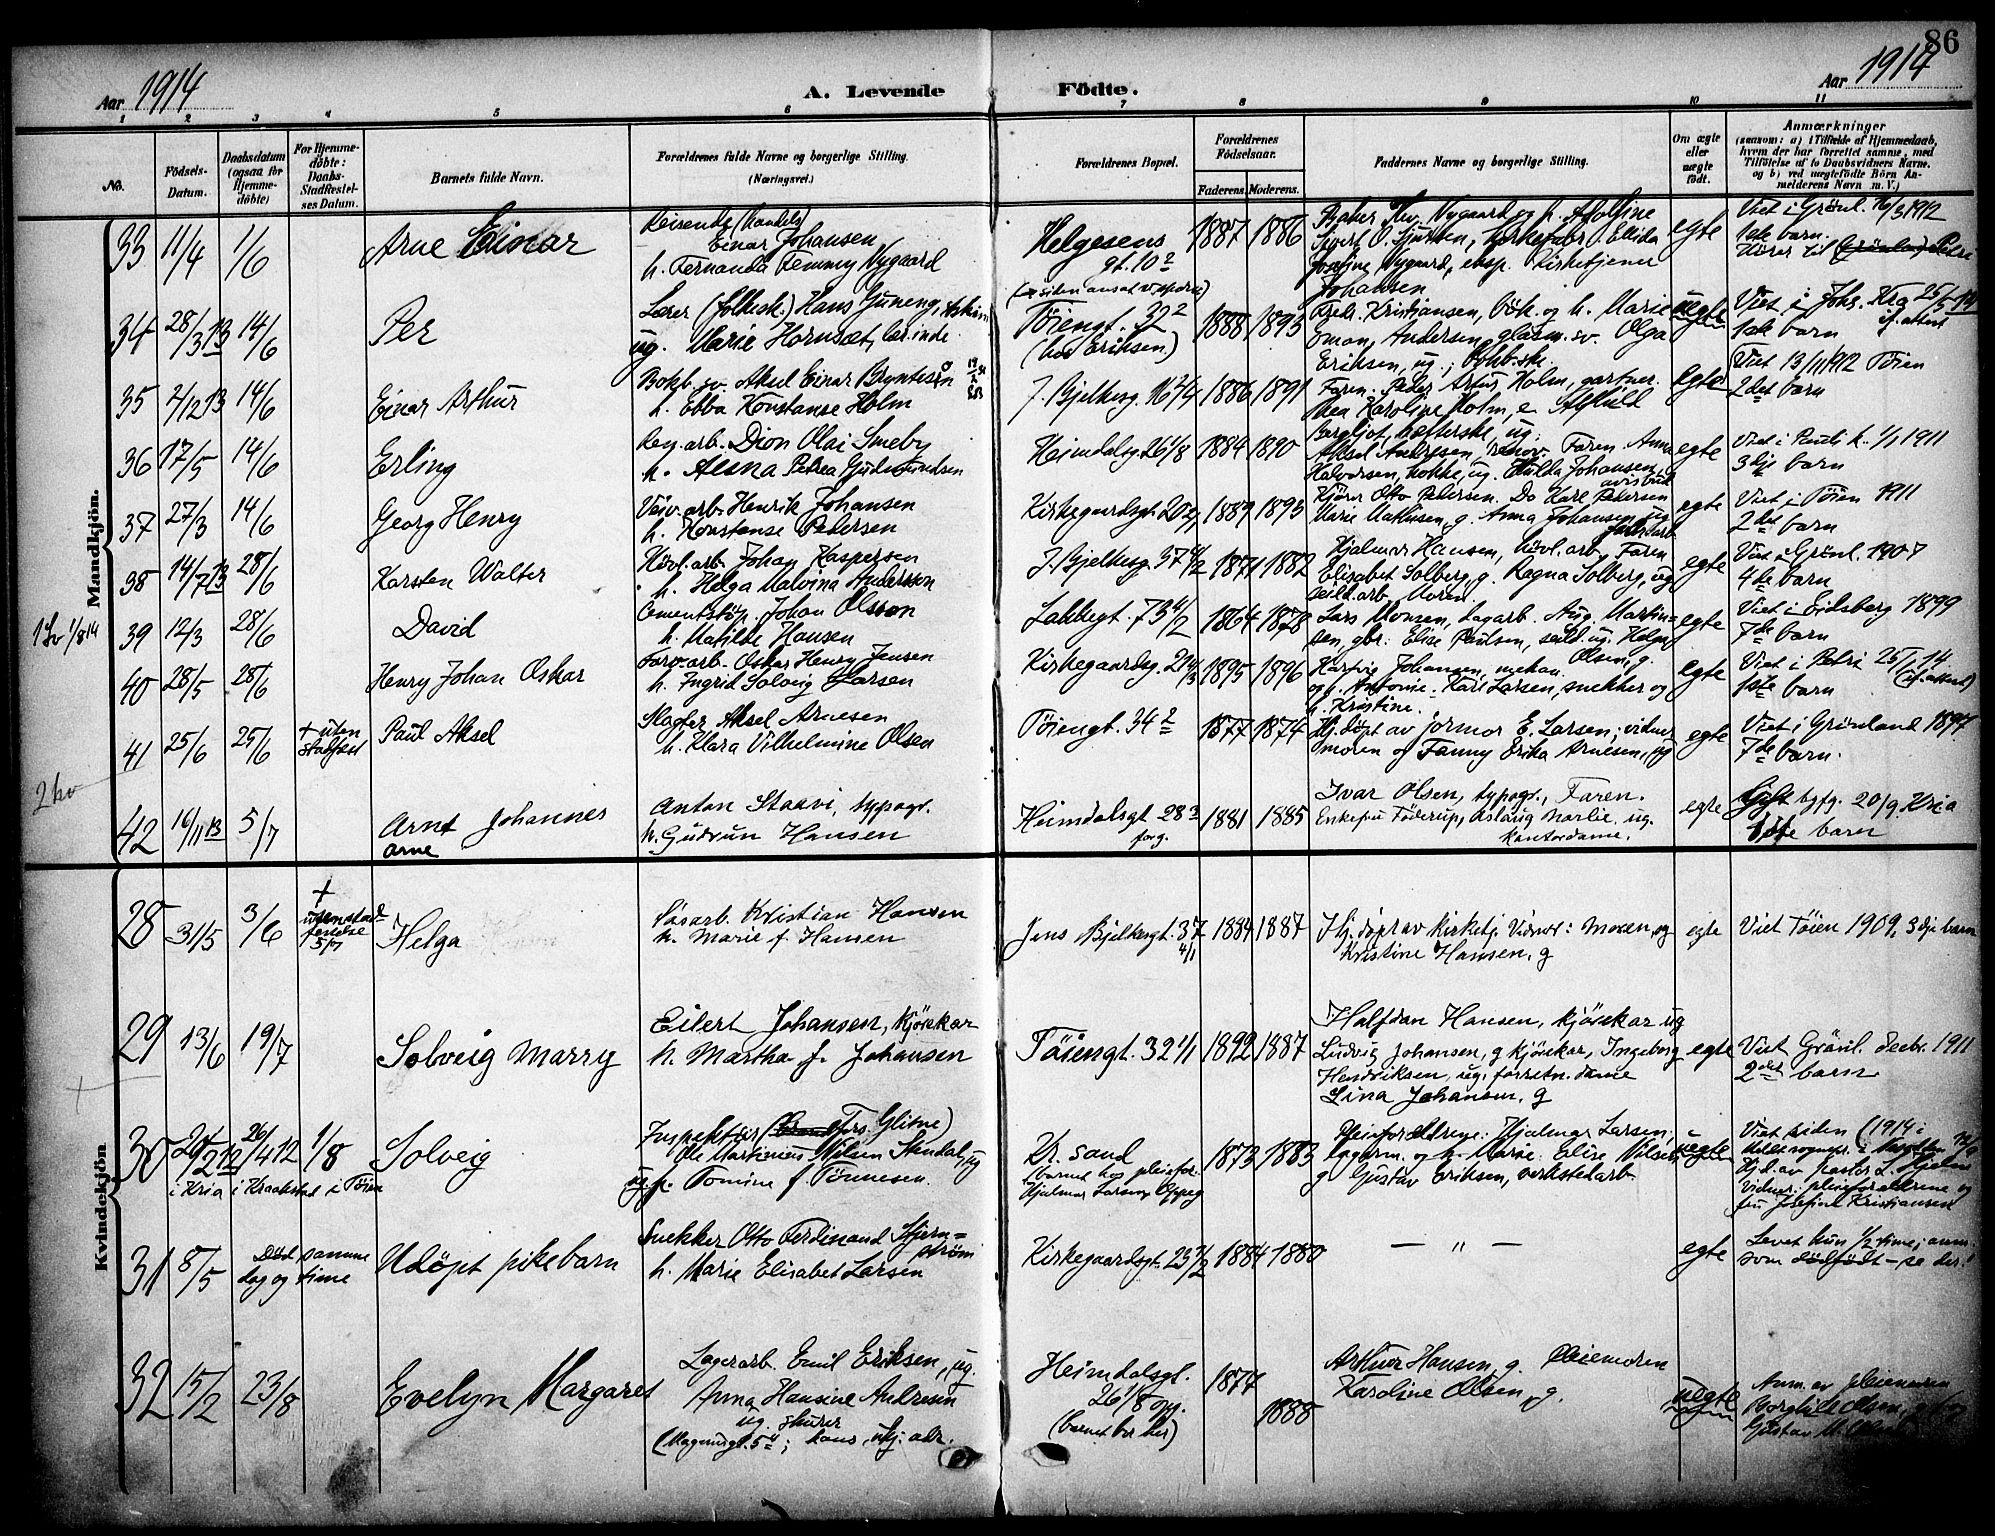 86
Aar 1914
A. Levende Födte.
Aar 1914
1 2 3 4 5 6 7 8 9 10 11
No.
Födsels-Datum.
Daabsdatum (ogsaa for Hjemme-döbte)
For Hjemme-döbte: Daabs-Stadfæstel-ses Datum.
Barnets fulde Navn.
Forældrenes fulde Navne og borgerlige Stilling. (Næringsvei.)
Forældrenes Bopæl.
Forældrenes Födselsaar.
Faderens. Moderens.
Faddernes Navne og borgerlige Stilling.
Om ægte eller uægte födt.
Anmærkninger
(saasom: a) i Tilfælde af Hjemmedaab, hvem der har forrettet samme, med Tilföielse af to Daabsvidners Navne. og b) ved uægtefödte Börn Anmelderens Navn m. V.)
Mandkjön.
33 11/4 1/6 Arne Einar
Reisende (handels) Einar Johansen
h. Fernanda Femmy Nygaard
Helgesens gt. 10 2
1887 1886
egte
Viet i Grönl. 16/3 1912
1ste barn.
34 28/3 13 14/6 Per
Lærer (folkesk.) Hans Guneng,
ug. Marie Hornsæt, lærinde
Töiengt. 32 2
(hos Eriksen)
1888 1893
Kristiansen, h. Marie
Andersen, glasm. sv. Olga
Eriksen, ug;
uegte
1ste barn
35 2/12 13 14/6 Einar Arthur
Bokb. sv. Aksel Einar Bryntesen
h. Ebba Konstanse Holm
J. Bjelkesg. 16 2/4 1886 1891
Faren. Peder Artur Holm, gartner.
Karoline Holm, e.
egte
Viet 13/11 1912 Töien
2det barn
36 17/5 14/6 Erling
Reg. arb. Dion Olai Smeby
Heimdalsg 26 1/8 1884 1890
Aksel Andresen, renov. Faren Anna
Halvorsen, kokke, ug. Hulda Johansen,
egte
Viet i Pauli k. 1/1 1911
3dje barn
37 27/3 14/6 Georg Henry
Væv. arb. Henrik Johansen
h. Konstanse Pedersen
1889 1893
Kjörer Otto Pedersen. Do Karl Pedersen
Marie Mathisen, g. Anna Johansen, ug
egte
Viet i Töien 1911
2det barn
38 14/7 13 28/6 Karsten Walter
Hövl. arb. Johan Kaspersen
h. Helga Malvina Andersson
J. Bjelkesg. 37 1871 1882
Hjalmar Hansen, hövl. arb. Faren
Elisabet Solberg, g. Ragna Solberg, ug
seild. arb. Moren.
egte
Viet i Grönl. 1907
4de barn
1 Sv 1/8 14
39 12/3 28/6 David
Cementstöp. Johan Olsson
h. Matilde Hansen
Lakkegt. 73 1864 1878
Lars Monsen, lagarb. Aug. Martin-
sen, gbr. Elise Paulsen, seild. ug. Helga
Olsen, g.
egte
Viet i Eidsberg 1899
7de barn
40 28/5 28/6 Henry Johan Oskar
Farv. arb. Oskar Henry Jensen
h. Ingrid Solveig Larsen
Kirkegaardsg. 21 1895 1896
Hartvig Johansen, mekan.
og h. Antonie. Karl Larsen, snekker og
h. Kristine.
egte
Viet i Petri 25/1 14.
(if. attest)
1ste barn
41 25/6 25/6 + uten stadfest Paul Aksel
Slagter Aksel Arnesen
h. Klara Vilhelmine Olsen
Töiengt. 34 2 1877 1874
Hj. döpt av jormor E. Larsen; vidner
moren og Fanny Erika Arnesen, ug
egte
Viet i Grönland 1897
7de barn.
2 hv
42 16/11 13 5/7 Arnt Johannes
Arne
Anton Staavi, typogr.
h. Gudrun Hansen
Heimdalsgt 28 3 1881 1885
forg.
Ivar Olsen, typogr., Faren.
Enkefru Föderup, Aslaug Marlie, ug.
kontordame.
egte
20/9. Kria
1ste barn
Kvindekjön
28 31/5 3/6 + uten stad-festelse 5/7 Helga
Gasarb. Kristian Hansen
h. Marie f. Hansen
Jens Bjelkesgt. 37 4/1 1884 1887
Hj. döpt av kirketj. Vidner: Moren, og
Kristine Hansen, g
egte
Viet Töien 1909, 3dje barn
29 13/6 19/7 Solveig Marry
Eilert Johansen, kjörekar
h. Martha f. Johansen
Töiengt. 32 1/1 1892 1887
Halfdan Hansen, kjörekar ug
Ludvig Johansen, g kjörekar, Ingeborg
Hendriksen, ug, forretn. dame
Lina Johansen, g
egte
Viet Grönl. decbr. 1911
2det barn
30 29/2 12 26/4 12 1/8 Solveig
i Kria i Kraakstad i Töien
Inspektör (Glitne)
Ole Martinius Nilsen Skndal, ug
ug. p. Tomine f. Tönnesen.
Kr. sand
(barnet hos pleiefor.
Hjalmar Larsens Oppeg
1873 1883
Pleieforældrene: Hjalmar Larsen,
lagerm. og h. Marie. Elise Nilsen
g Gustav Eriksen, verkstedarb.
uegte
Viet siden (1914 i
Hjd. av pastor L. Hjelm
vidner: pleieforældrene og
fru Josefine Kristiansen
31 8/5 Död samme dag og time Udöpt pikebarn
Snekker Otto Ferdinand Stjern-
ström
h. Marie Elisabet Larsen
Kirkegaardsgt. 23 1884 1880
— " —
egte
Levet kun 1/2 time; anm.
som dödfödt – se der!
32 15/2 23/8 Evelyn Margaret
Lagerarb. Emil Eriksen, ug.
Anna Hansine Andresen
ug.
Heimdalsgt. 26 1/8 opg.
(barnet bor her)
1877
1888
Arthur Hansen, g. Pleiemoren
Karoline Olsen, g.
uegte
Anm. av pleiemoren
Borghild Olsen,
Gustav